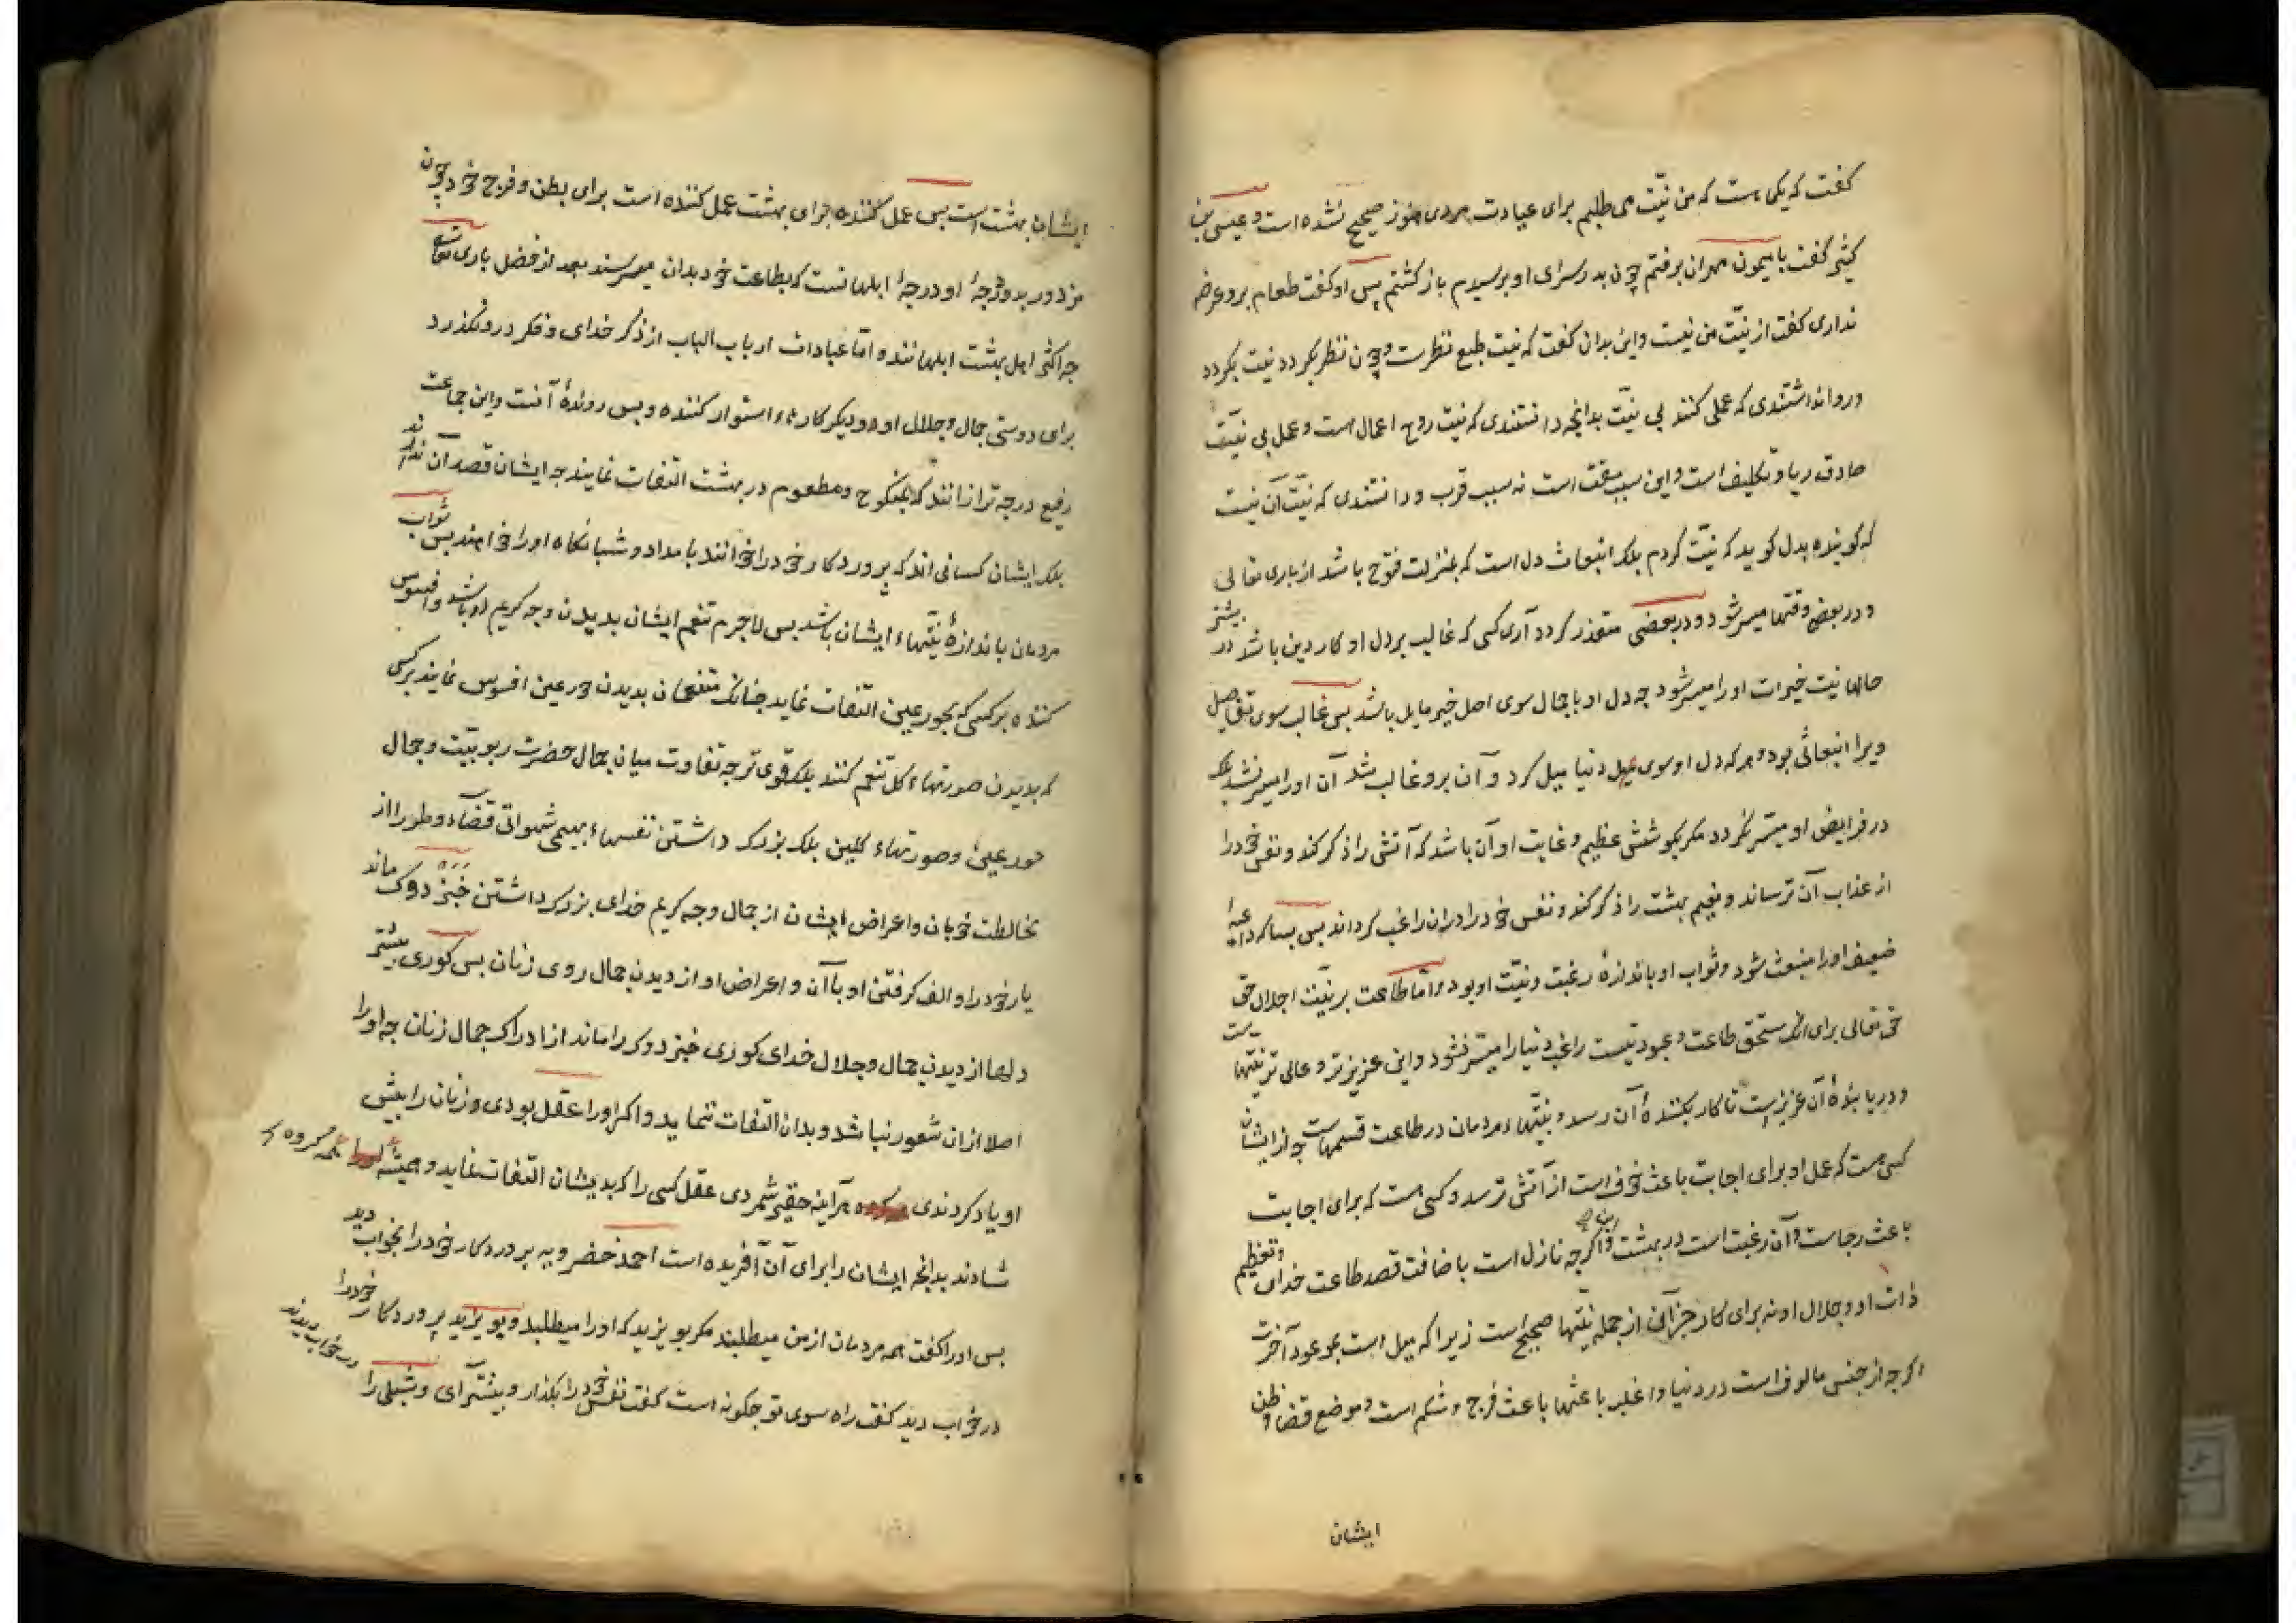 کفت که یکی است که من نیّت می طلبم برای عیادت مردی هنوز صحیح نشده است و عیسی بن
کثیر کفت با میمون مهران برفتم چون بدر سرای او برسیدم باز کشتم پس او کفت طعام برو عرضه
نداری کفت از نیّت من نیست و این بدان کفت که نیت طبع نظرست و چون نظر بکردد نیت بکردد
و روا نداشتندی که عملی کنند بی نیّت بدانچه دانستندی که نیّت روح اعمال است و عمل بی نیّت
صادق ریا و تکلیف است و این سبب مقت است نه سبب قرب و دانستندی که نیّت آن نیست
که کوینده بدل کوید که نیّت کردم بلکه انبعاث دل است که بمنزلت فتوح باشد از باری تعالی
و در بعض وقتها میسر شود و در بعضی متعذر کردد آری کسی که غالب بر دل او کار دین باشد در بیشتر
حالها نیت خیرات او را میسر شود چه دل او باجمال سوی اصل خیر مایل باشد پس غالب سوی تفاصیل
ویرا انبعاثی بود و هرکه دل او سوی دنیا میل کرد و آن برو غالب شد آن او را میسر نشد بلکه
در فرایض او میسّر نکردد مکر بکوشش عظیم و غایت او آن باشد که آتش را ذکر کند و نفس خود را
از عذاب آن ترساند و نعیم بهشت را ذکر کند و نفس خود را دران راغب کرداند پس بسا که داعیهٔ
ضعیف او را منبعث شود و ثواب او باندازهٔ رغبت و نیّت او بود و امّا طاعت بر نیّت اجلال حق
حق تعالی برای انک مستحق طاعت و عبودیتست راغب دنیا را میسّر نشود و این عزیزتر و عالی تر نیّتهاست
و دریابندهٔ آن عزیزست تا کار بکنندهٔ آن رسد و نیّتهاء مردمان در طاعت قسمهاست چه از ایشان
کسی هست که عمل او برای اجابت باعث خوف است از آتش ترسد و کسی هست که برای اجابت
باعث رجاست و آن رغبت است در بهشت و این اکرچه نازل است باضافت قصد طاعت خدای و تعظیم
ذات او و جلال او نه برای کار جز آن از جمله نیّتها صحیح است زیرا که میل است بموعود آخرت
اکرچه از جنس مالوف است در دنیا و اغلب باعثها باعث فرج و شکم است و موضع قضاء وطن
ایشان
ایشان بهشت است پس عمل کننده برای بهشت عمل کننده است برای بطن و فرج خود چون
مزدور بد و درجهٔ او درجهٔ ابلهانست که بطاعت خود بدان میرسند بعد از فضل باری تعالی
چه اکثر اهل بهشت ابلهانند و امّا عبادات ارباب الباب از ذکر خدای و فکر درو نکذرد
برای دوستی جمال و جلال او و دیکر کارهاء استوار کننده و پس روندهٔ آنست و این جماعت
رفیع درجه تر ازانند که بمنکوح و مطعوم در بهشت التفات نمایند چه ایشان قصد آن ندارند
بلکه ایشان کسانی اند که پروردکار خود را خوانند بامداد و شبانکاه او را خواهند پس ثواب
مردمان باندازهٔ نیّتهاء ایشان باشد پس لاجرم تنعم ایشان بدیدن وجه کریم او باشد و افسوس
کننده بر کسی که بحور عین التفات نماید چنانک متنعمان بدیدن حور عین افسوس نمایند بر کسی
که بدیدن صورتهاء کل تنعّم کنند بلکه قوی تر چه تفاوت میان جمال حضرت ربوبیّت و جمال
حور عین و صورتهاء کلین بلکه بزرک داشتن نفسهاء بهیمی شهوانی قضاء وطر را از
مخالطت خوبان و اعراض ایشان از جمال وجه کریم خدای بزرک داشتن خبز دوک ماند
یار خود را و الف کرفتن او با آن و اعراض او از دیدن جمال روی زنان پس کوری بیشتر
دلها از دیدن جمال و جلال خدای کوری خبز دوک را ماند از ادراک جمال زنان چه او را
اصلا ازان شعور نباشد و بدان التفات ننماید و اکر او را عقل بودی و زنان را پیش
او یاد کردندی هر آینه حقیر شمردی عقل کسی را که بدیشان التفات نماید و همیشه همه کروه
شادند بدانچه ایشان را برای آن آفریده است احمد خضرویه پروردکار خود را بخواب دید
پس او را کفت همه مردمان از من میطلبند مکر بویزید که او را میطلبد و بویزید پروردکار خود را
در خواب دید کفت راه سوی تو چکونه است کفت نفس خود را بکذار و بیشتر آی و شبلی را در خواب دیدند